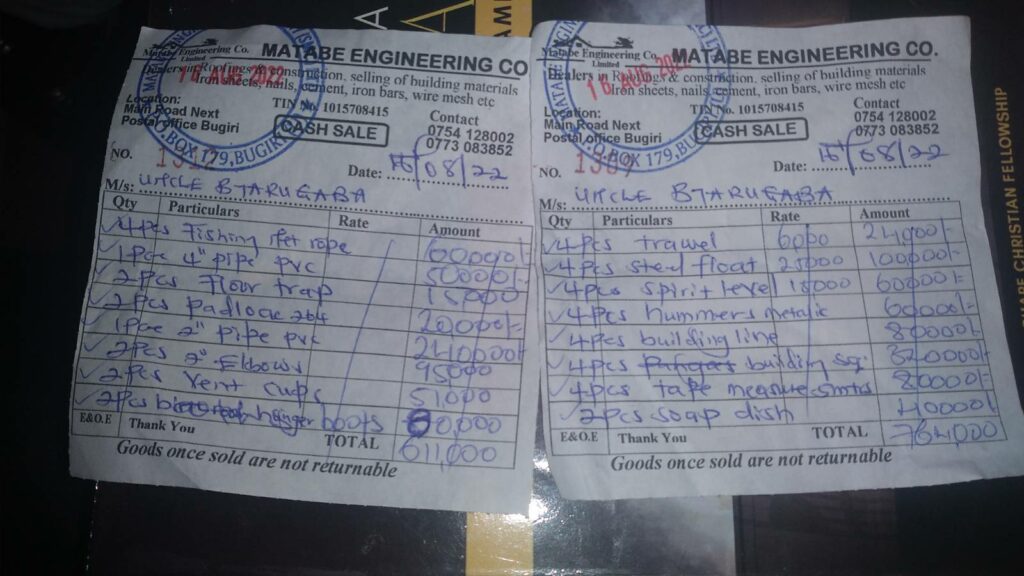 Matabe Engineering Co.
Limited
MATABE ENGINEERING CO
Dealers in Roofings & construction. selling of building materials
Iron sheets, nails, cement, iron bars, wire mesh etc
16 AUG 2022
BOX 179, BUGIRI
Location:
Main Road Next
Postal office Bugiri
TIN No. 1015708415
CASH SALE
Contact
0754 128002
0773 083852
NO.
Date: 16/08/22
M/s: UNCLE BTARUGABA
Qty Particulars Rate Amount
4pcs Fishing net rope 60000/-
1pce 4" pipe pvc 50000/-
2pcs Floor trap 15000
2pcs padlock 20000/-
1pce 2" pipe pvc
2pcs 2" Elbows
2pcs Vent cups
2pcs boots
E&O.E Thank You TOTAL 611,000
Goods once sold are not returnable
Matabe Engineering Co.
Limited
MATABE ENGINEERING CO.
Dealers in Roofings & construction. selling of building materials
Iron sheets, nails, cement, iron bars, wire mesh etc
16 AUG 2022
BOX 179, BUGIRI
Location:
Main Road Next
Postal office Bugiri
TIN No. 1015708415
CASH SALE
Contact
0754 128002
0773 083852
NO.
Date: 16/08/22
M/s: UNCLE BTARUGABA
Qty Particulars Rate Amount
4pcs trawel 6000 24000/-
4pcs steel float 25000 100000/-
4pcs spirit level 15000 60000/-
4pcs hummers metalic 60000/-
4pcs building line 80000
4pcs building sq. 320000/-
4pcs tape measure 5mts 80000/-
2pcs soap dish 40000/-
E&O.E Thank You TOTAL 764,000
Goods once sold are not returnable
CHRISTIAN FELLOWSHIP